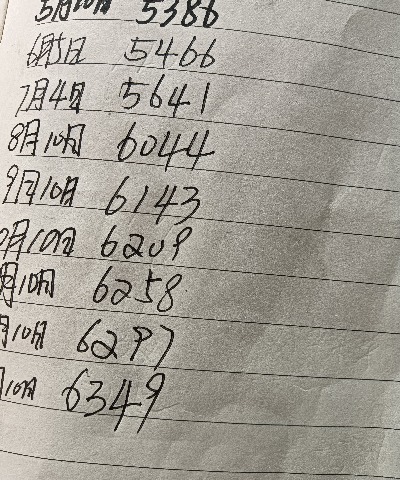 5月10日 5386
6月5日 5466
7月4日 5641
8月10日 6044
9月10日 6143
0月10日 6209
月10日 6258
月10日 6297
10日 6349